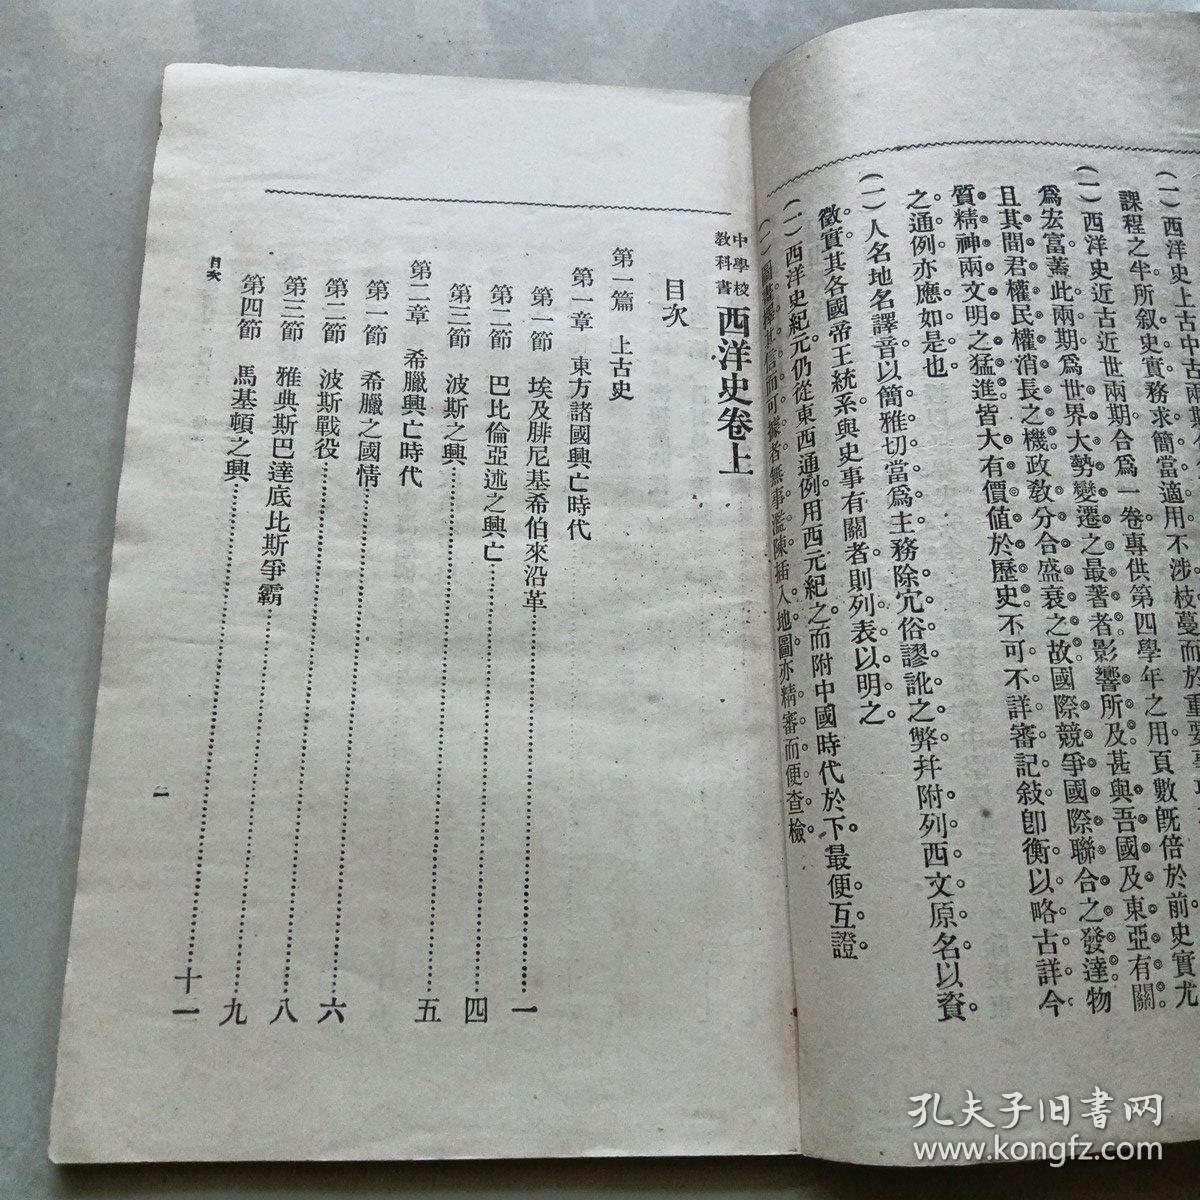 (一)西洋史上古中古兩期
課程之半所叙史實務求簡當適用不涉枝蔓而於重要事
(一)西洋史近古近世兩期合爲一卷專供第四學年之用頁數旣倍於前史實尤
爲宏富蓋此兩期爲世界大勢變遷之最著者影響所及甚與吾國及東亞有關
且其間君權民權消長之機政敎分合盛衰之故國際競爭國際聯合之發達物
質精神兩文明之猛進皆大有價値於歷史不可不詳審記敍卽衡以略古詳今
之通例亦應如是也
(一)人名地名譯音以簡雅切當爲主務除宂俗謬訛之弊幷附列西文原名以資
徵實其各國帝王統系與史事有關者則列表以明之
(一)西洋史紀元仍從東西通例用西元紀之而附中國時代於下最便互證
(一)圖畫擇其信而可據者無事濫陳插入地圖亦精審而便查檢
中學校教科書 西洋史卷上
目次
第一篇 上古史
第一章 東方諸國興亡時代
第一節 埃及腓尼基希伯來沿革……一
第二節 巴比倫亞述之興亡……四
第三節 波斯之興……五
第二章 希臘興亡時代
第一節 希臘之國情……六
第二節 波斯戰役……八
第三節 雅典斯巴達底比斯爭霸……九
第四節 馬基頓之興……十一
目次
一
孔夫子旧书网
www.kongfz.com